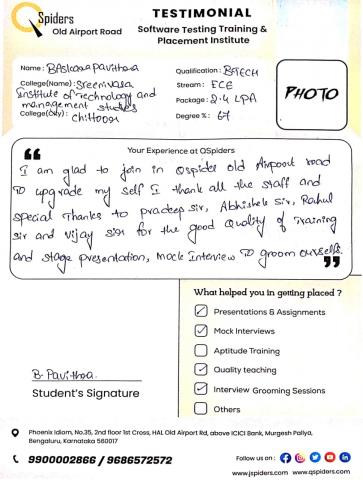 QSpiders
Old Airport Road
TESTIMONIAL
Software Testing Training &
Placement Institute
Name : BAskara pavithra
College(Name) : Sreenivasa
Institute of Technology and
management studies
College(City) : chittoor
Qualification : B-TECH
Stream : ECE
Package : 2.4 LPA
Degree % : 67
PHOTO
Your Experience at QSpiders
I am glad to join in Qspider old Airpoort road
TO upgrade my self I thank all the staff and
special Thanks to pradeep sir, Abhishek sir, Rahul
sir and vijay sir for the good Quality of Training
and stage presentation, mock Interview TO groom ourselfs.
What helped you in getting placed ?
Presentations & Assignments
Mock Interviews
Aptitude Training
Quality teaching
Interview Grooming Sessions
Others
B. Pavithra.
Student's Signature
Phoenix Idiom, No.35, 2nd floor 1st Cross, HAL Old Airport Rd, above ICICI Bank, Murgesh Pallya,
Bengaluru, Karnataka 560017
9900002866 / 9686572572
Follow us on :
www.jspiders.com | www.qspiders.com